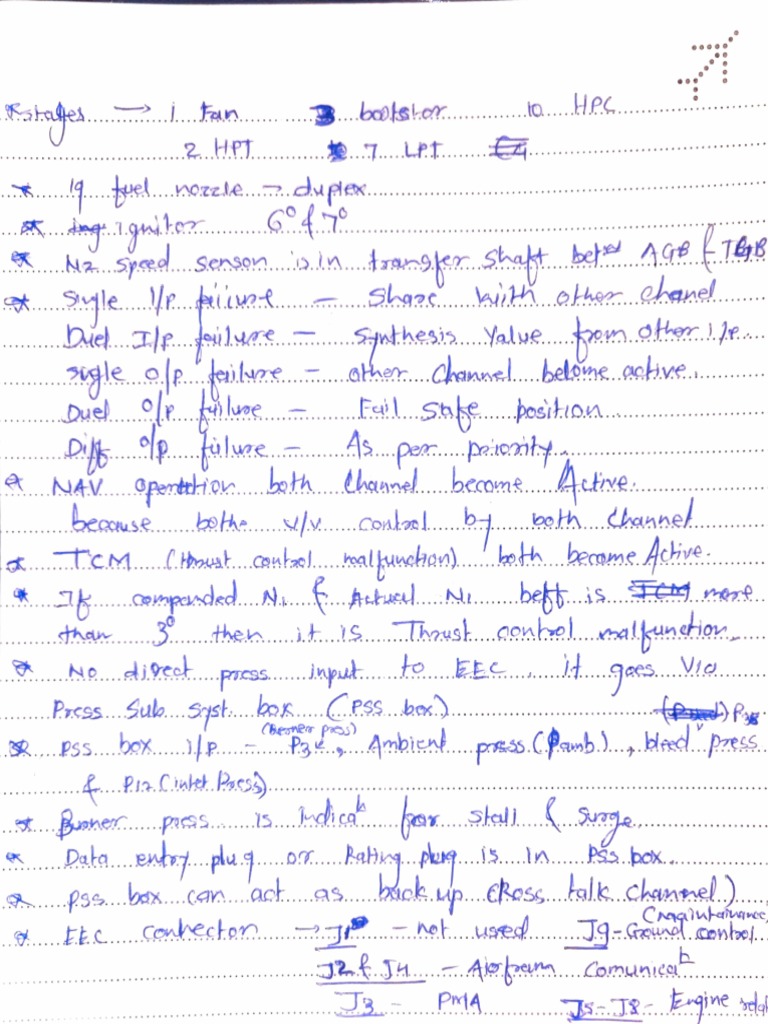 * stages → 1 fan 3 bootstor 10 HPC
2 HPT 7 LPT
* 19 fuel nozzle → duplex
* ignitor 6° & 7°
* N2 speed senson is in transfer shaft betn AGB & TGB
* Sigle I/p faiiure – Share with other chanel
Duel I/p failure – Synthesis Value from other i/p.
sigle o/p failure – other Channel become active.
Duel o/p failure – Fail Safe position
Diff o/p failure – As per priority.
* NAV operation both Channel become Active.
because bothe v/v control by both Channel
* TCM (thrust control malfunction) both become Active.
* If compended N1 & Actual N1 beff is more
than 3° then it is Thrust control malfunction.
* No direct press input to EEC, it goes Via
Press Sub Syst. box (PSS box)
* PSS box i/p – P3 (berner press), Ambient press (Pamb.), bleed press
& P12 (intet Press)
* Burner press is indica for stall & surge.
* Data entry plug or Rating plug is in PSS box.
* PSS box can act as back up CRoss talk Channel)
* EEC connector → J1 – not used J9 – Ground control (maaintainance,
J2 & J4 – Airfram Comunica
J3 – PMA J5 – J8 – Engine